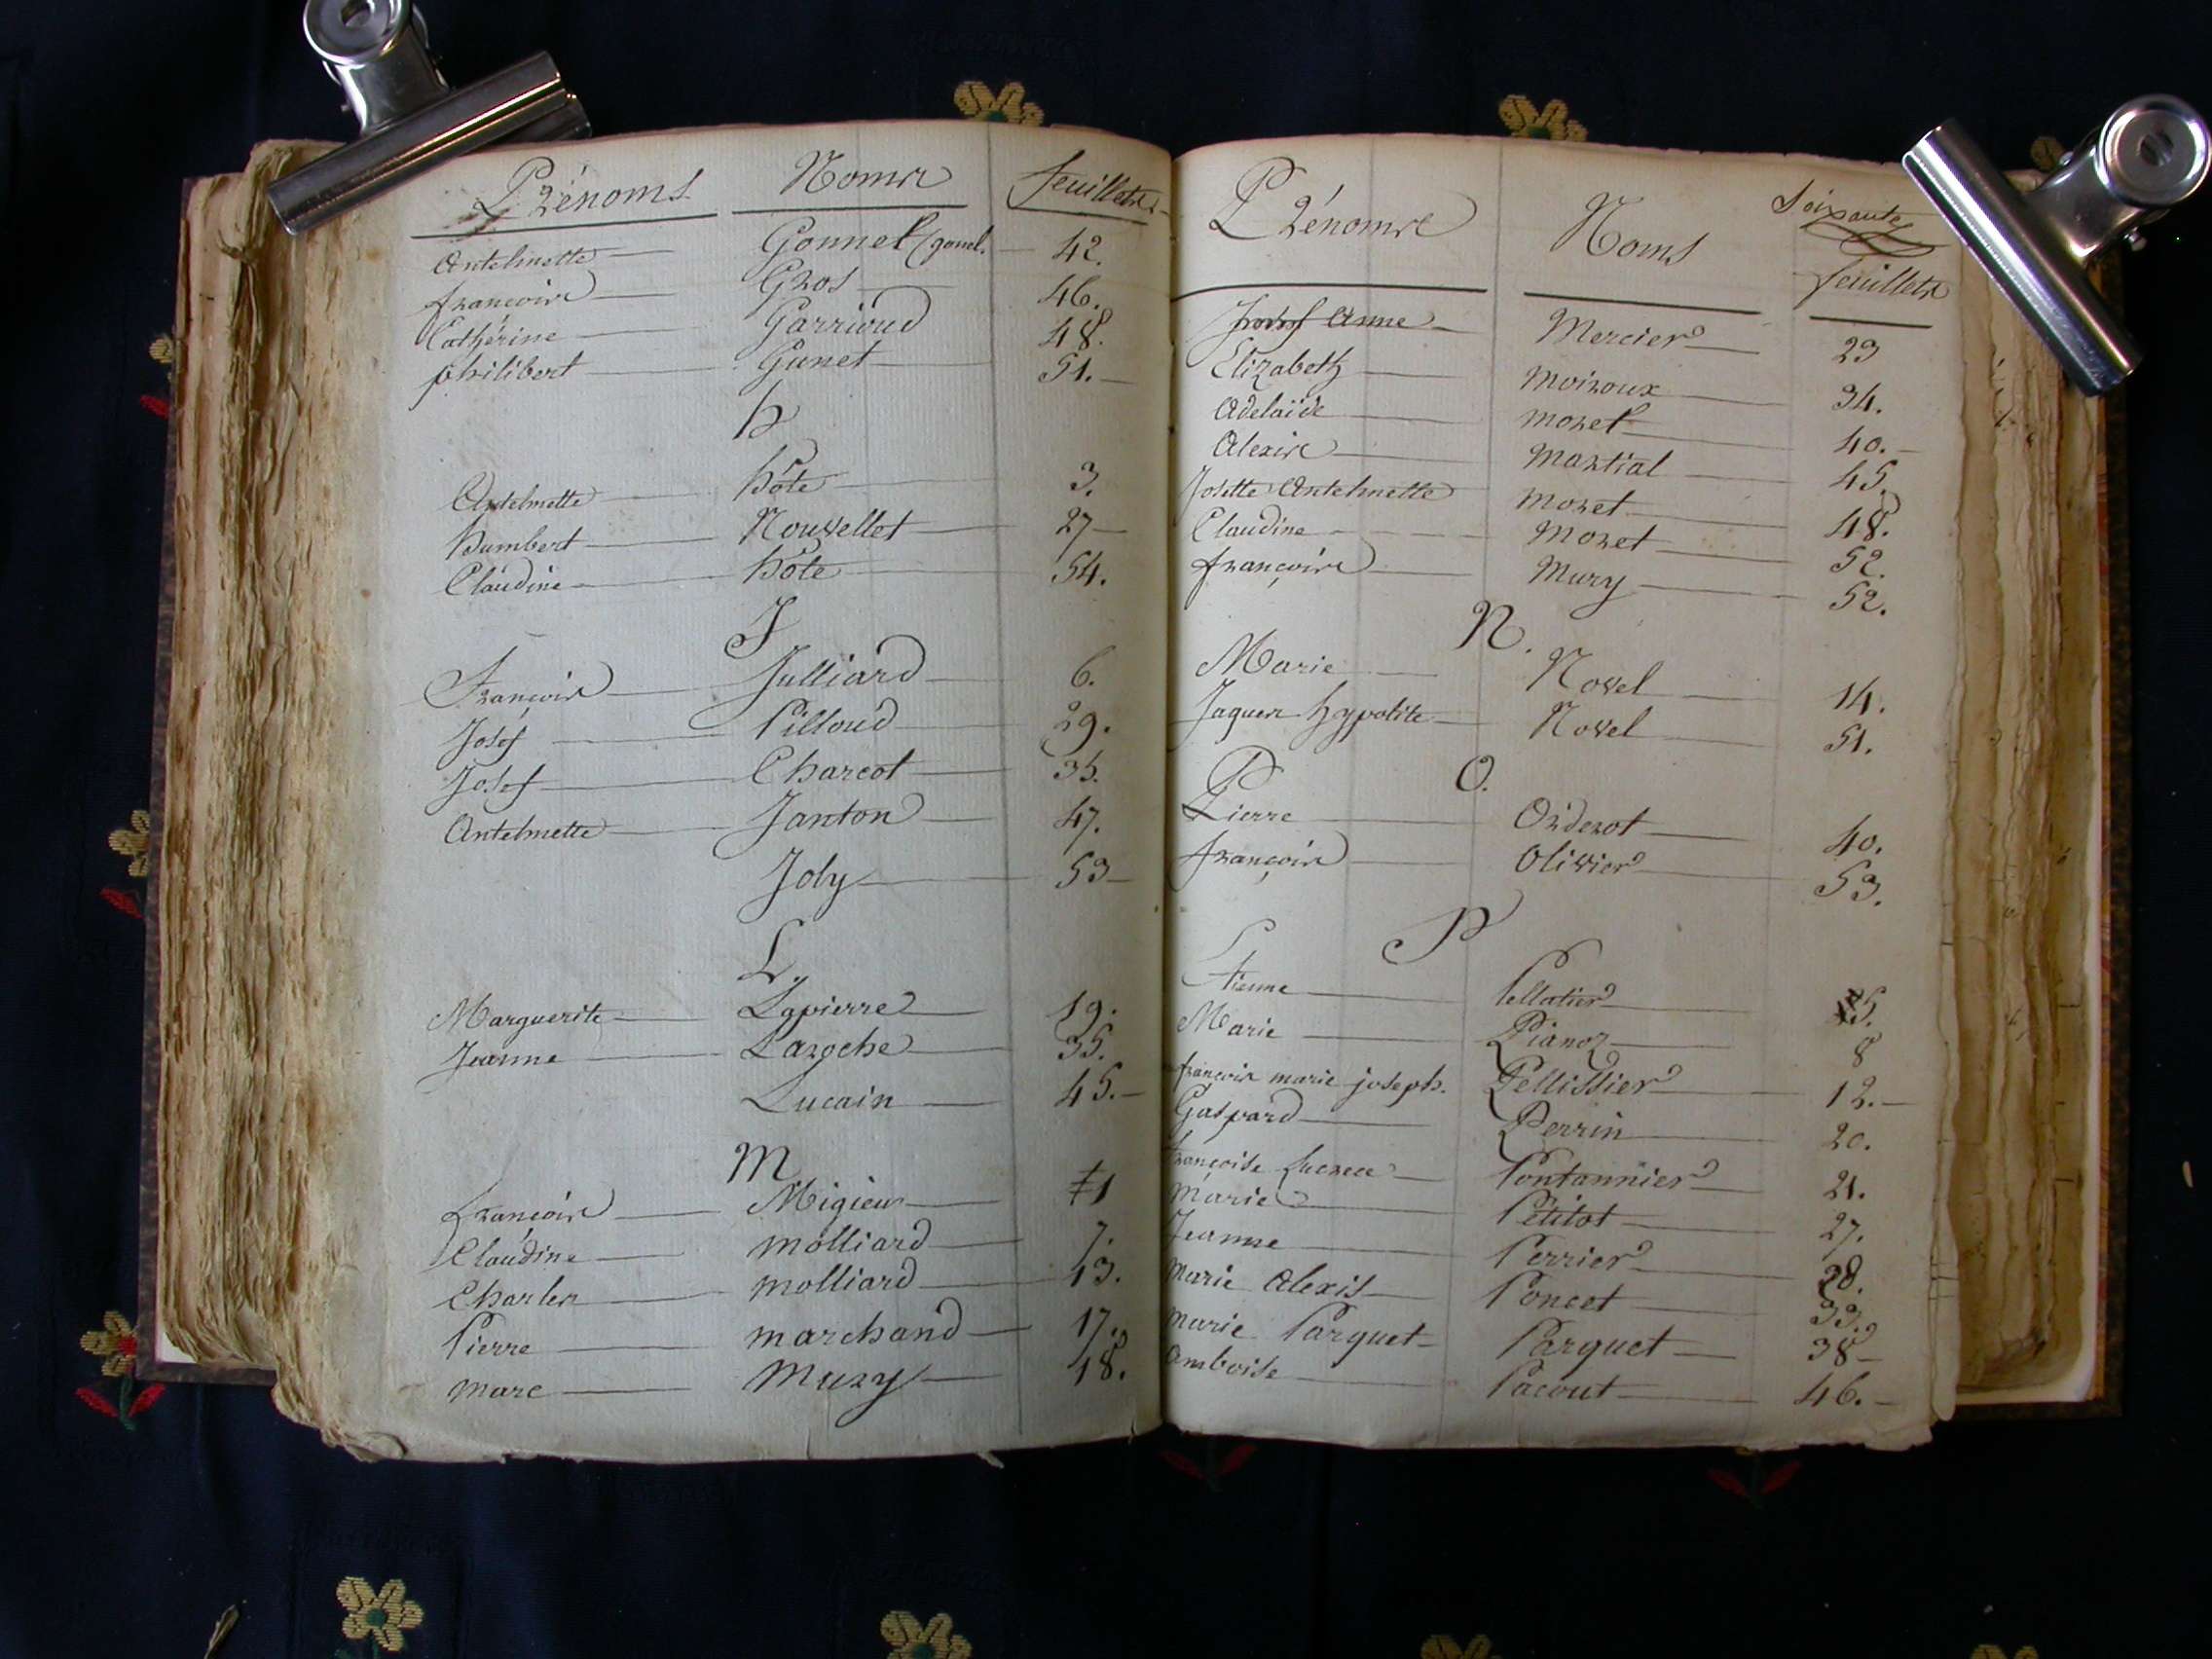 Prénoms Noms feuillets
Antelmette Gonnel (gonel. 42.
françois Gros 46.
Cathérine Garrioud 48.
philibert Gunet 51.
h
Antelmette hôte 3.
humbert Nouvellet 27
Claudine hôte 54.
J
François Julliard 6.
Josef Pilloud 29.
Josef Charcot 35.
Antelmette Janton 47.
Joly 53
L.
Marguerite Lapierre 19.
Jeanne Laroche 35.
Lucain 45.
M
françois Migieux 1
Claudine molliard 7.
Charles molliard 13.
Pierre marchand 17.
marc Mury 18.
Soixante
Prénoms Noms feuillets
Anne Mercier 23
Elizabeth moiroux 34.
Adelaïde morel 40.
Alexis martial 45.
Josette Antelmette moret 48.
Claudine moret 52.
françois mury 52.
N.
Marie Novel 14.
Jaques hypolite Novel 51.
O.
Pierre Orderot 40.
françois olivier 53.
P
Etienne Pellatier 5.
Marie Pianoz 8
françois marie joseph. Pellissier 12.
Gaspard Perrin 20.
françoise Lucrece Pontannier 21.
marie Petitot 27.
Jeanne Perrier 28.
marie Alexis Poncet 33.
marie Parquet Parquet 38
Amboise Pacout 46.